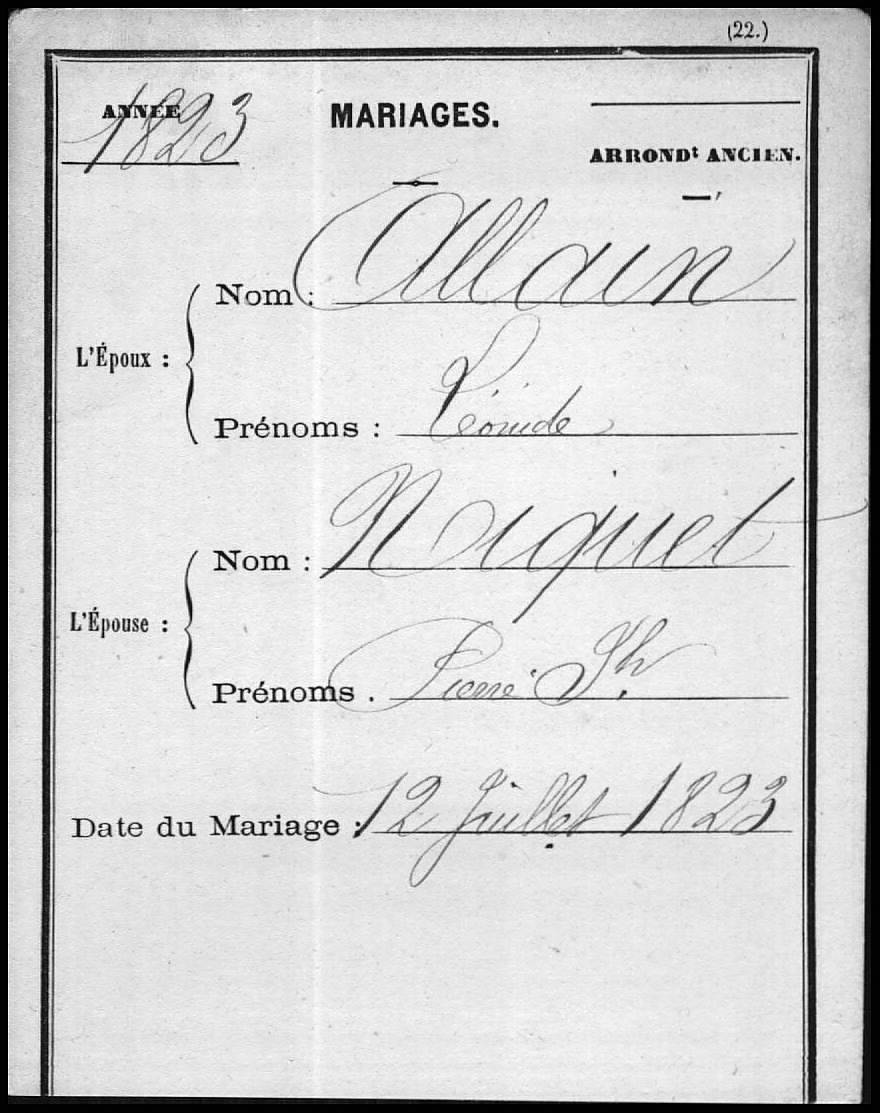 (22.)
ANNÉE
1823
MARIAGES.
ARRONDt ANCIEN.
L'Époux :
Nom : Allain
Prénoms : Léonide
L'Épouse :
Nom : Niquet
Prénoms . Pierre Ph.
Date du Mariage : 12 Juillet 1823